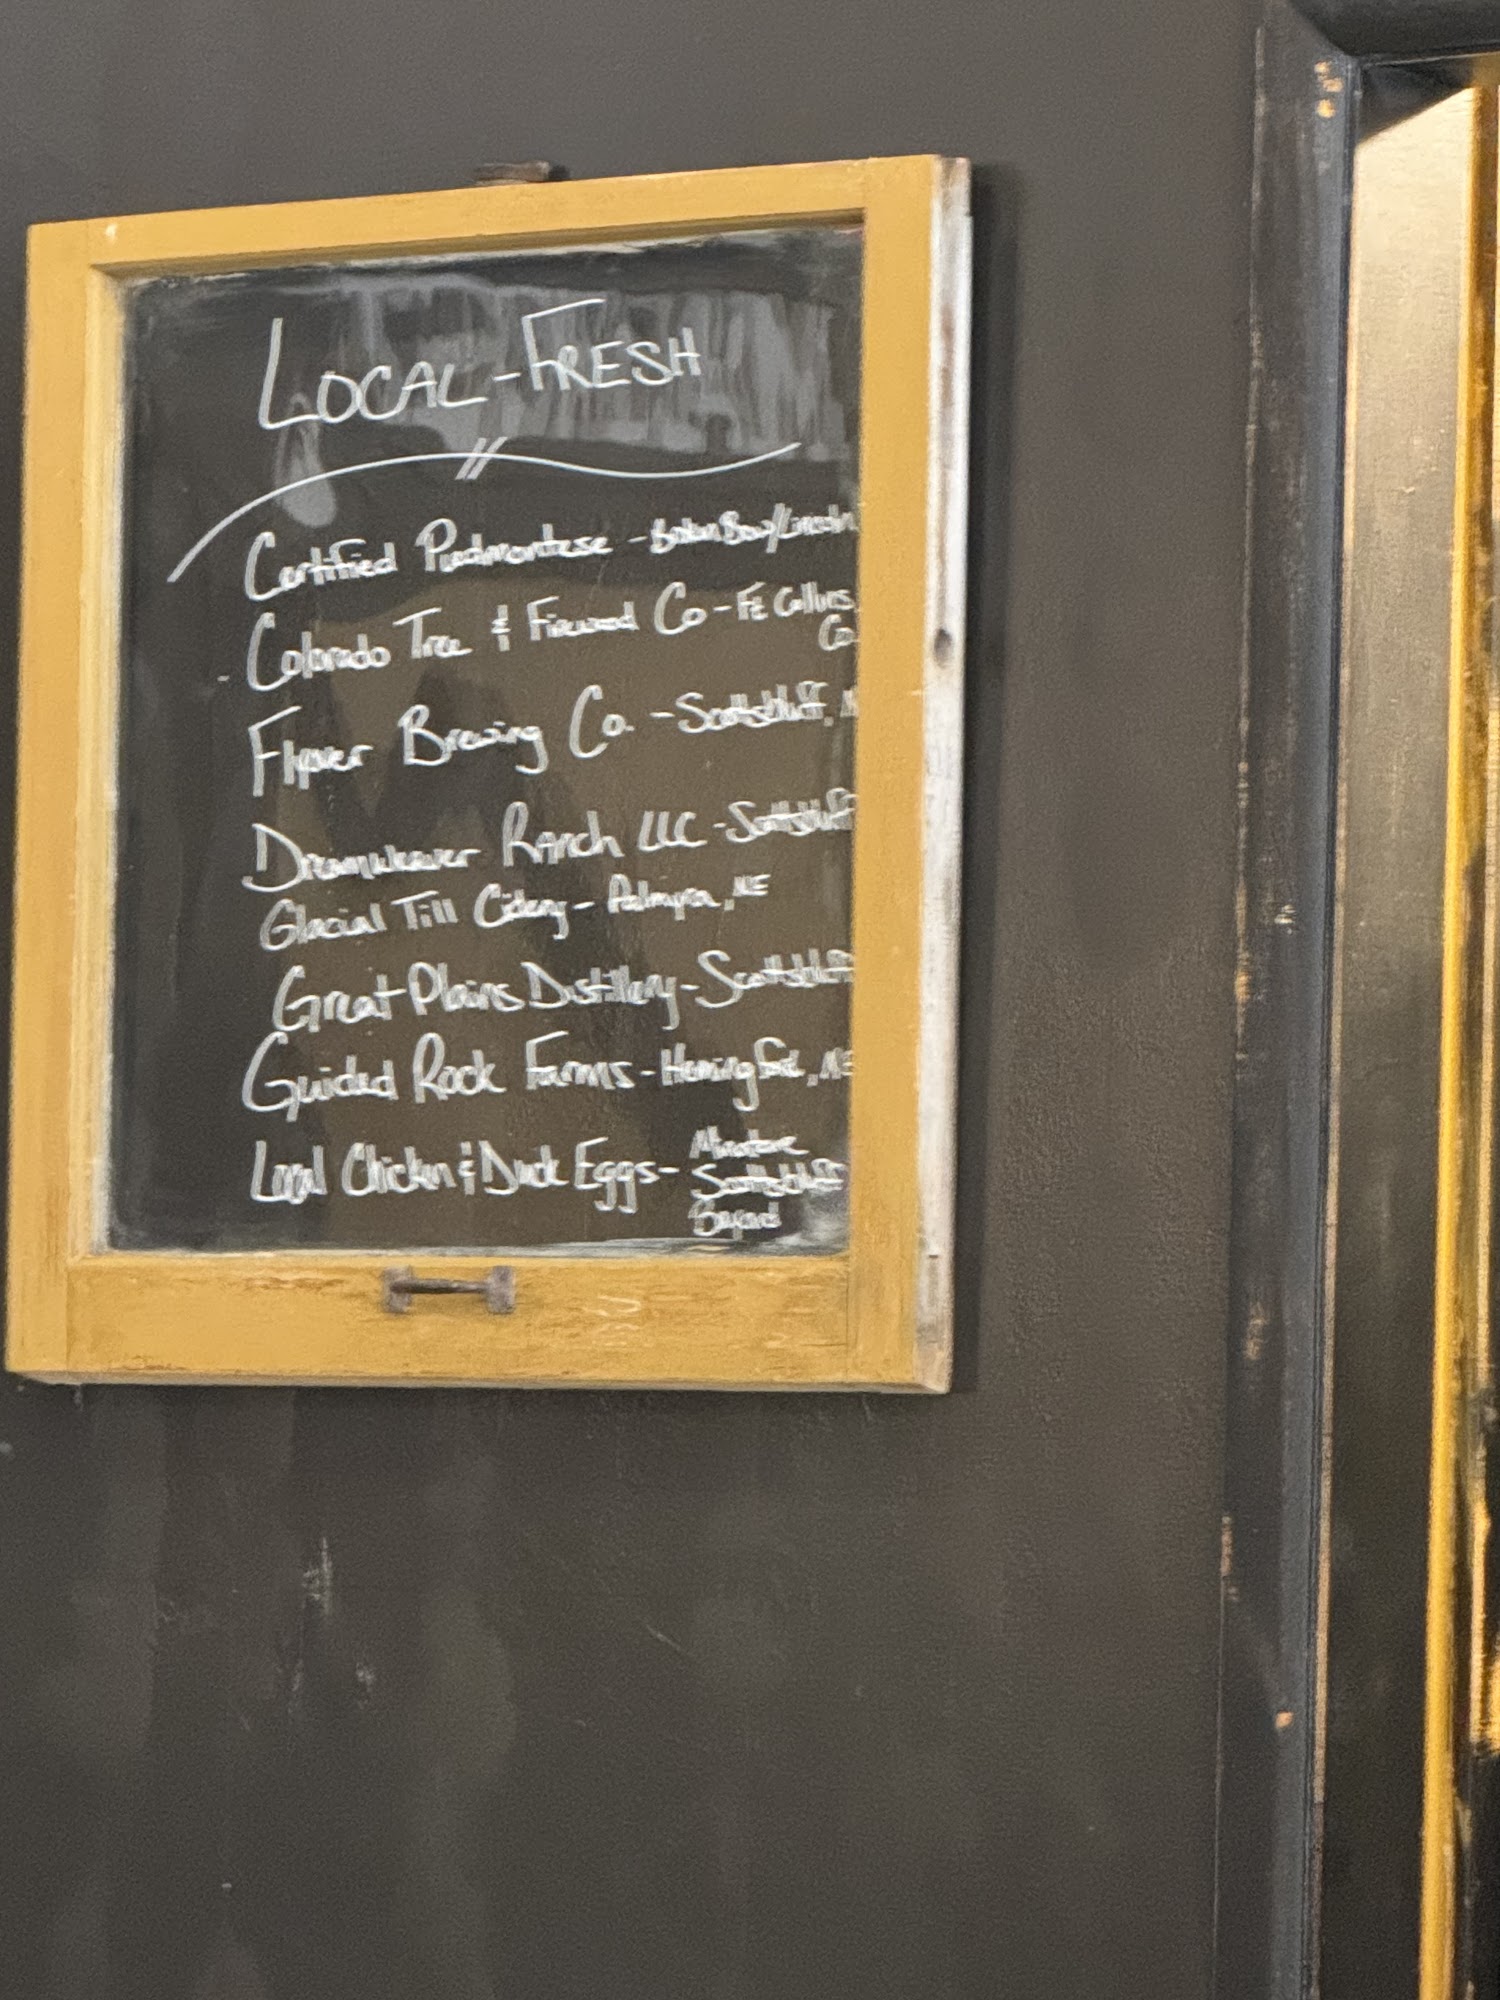 LOCAL-FRESH
Certified Piedmontese - Broken Bow/Lincoln
Colorado Tree & Firewood Co - Ft Collins,
Co.
Flyover Brewing Co. - Scottsbluff,
Dreamweaver Ranch LLC - Scottsbluff
Glacial Till Cidery - Palmyra, NE
Great Plains Distillery - Scottsbluff
Guided Rock Farms - Hemingford, NE
Local Chicken & Duck Eggs - Minatare
Scottsbluff
Bayard